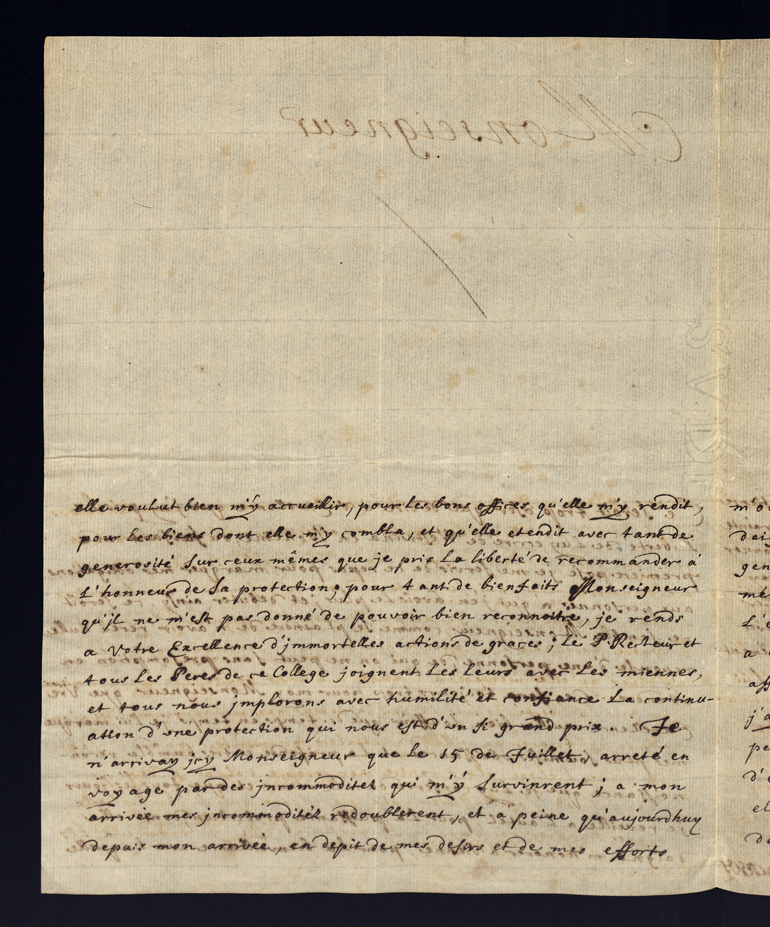 elle voulut bien m'ÿ accueillir, pour les bons offices qu'elle m'y rendit,
pour les biens dont elle m'y combla, et qu'elle etendit avec tant de
generosité sur ceux mêmes que je pris la liberté de recommander à
l'honneur de sa protection; pour tant de bienfaits Monseigneur
qu'jl ne m'est pas donné de pouvoir bien reconnoitre, je rends
a Votre Excellence d'jmmortelles actions de graces; le P. Recteur et
tous les Peres de ce College joignent les leurs avec les miennes,
et tous nous jmplorons avec humilité et confiance la continu-
ation d'une protection qui nous est d'un si grand prix. Je
n'arrivay jcy Monseigneur que le 15 de Juillet, arreté en
voyage par des jncommodités qui m'ÿ survinrent; a mon
arrivée mes jncommodités redoublerent, et a peine qu'aujourdhuy
depuis mon arrivée, en depit de mes desirs et de mes efforts